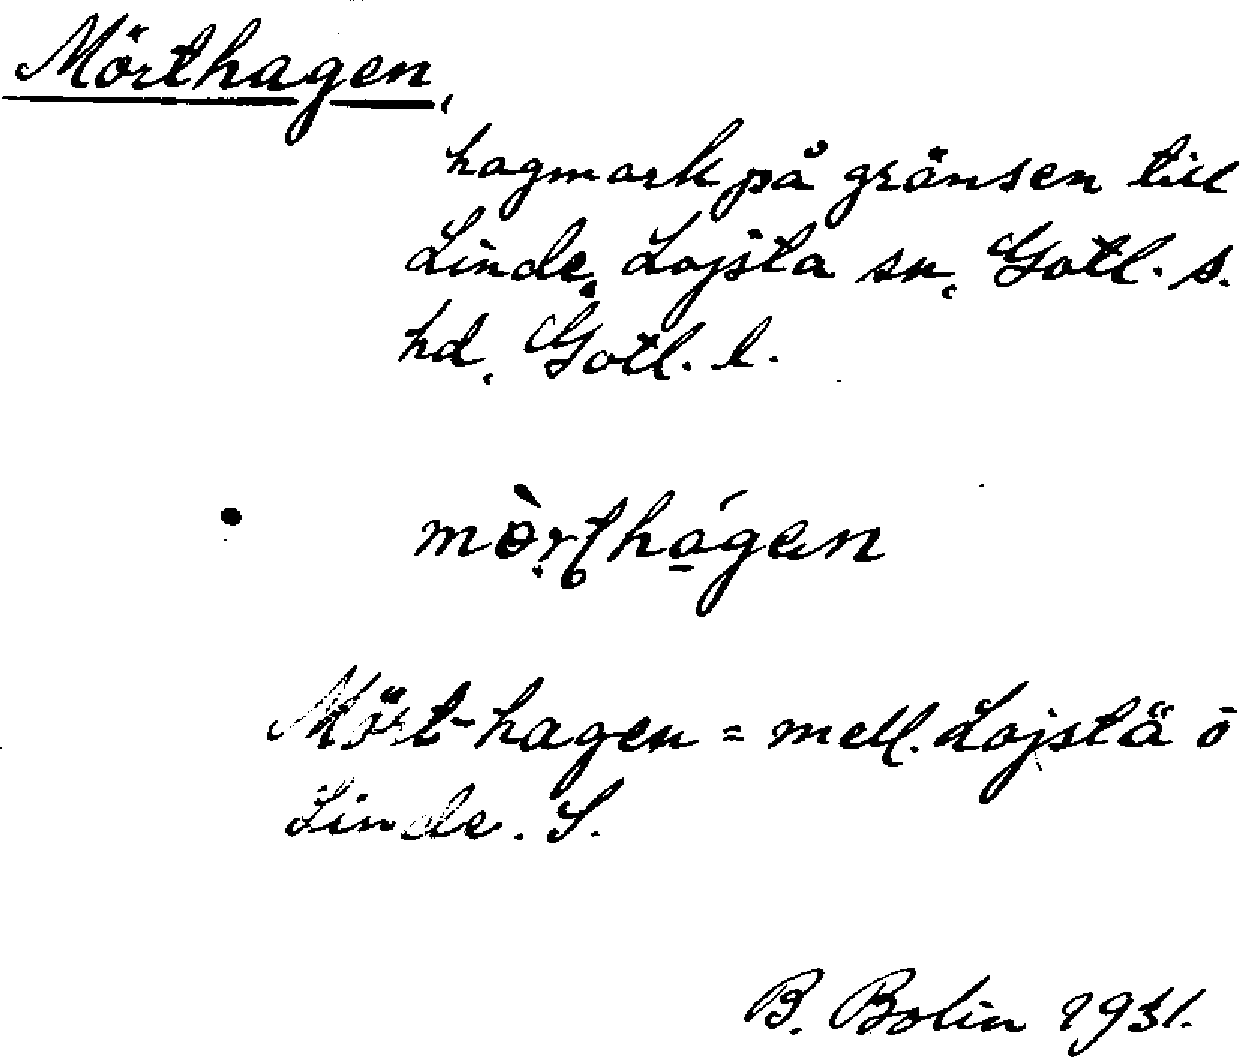 Mörthagen,
hagmark på gränsen till
Linde, Lojsta sn, Gotl. s.
hd, Gotl. l.
mòrthágen
Mört-hagen = mell. Lojstä ō
Linde. S.
B. Bolin 1931.